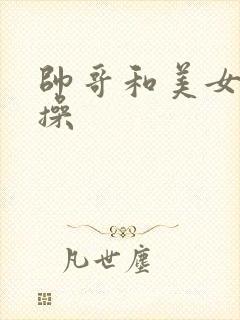 帥哥和美女
操
凡世塵